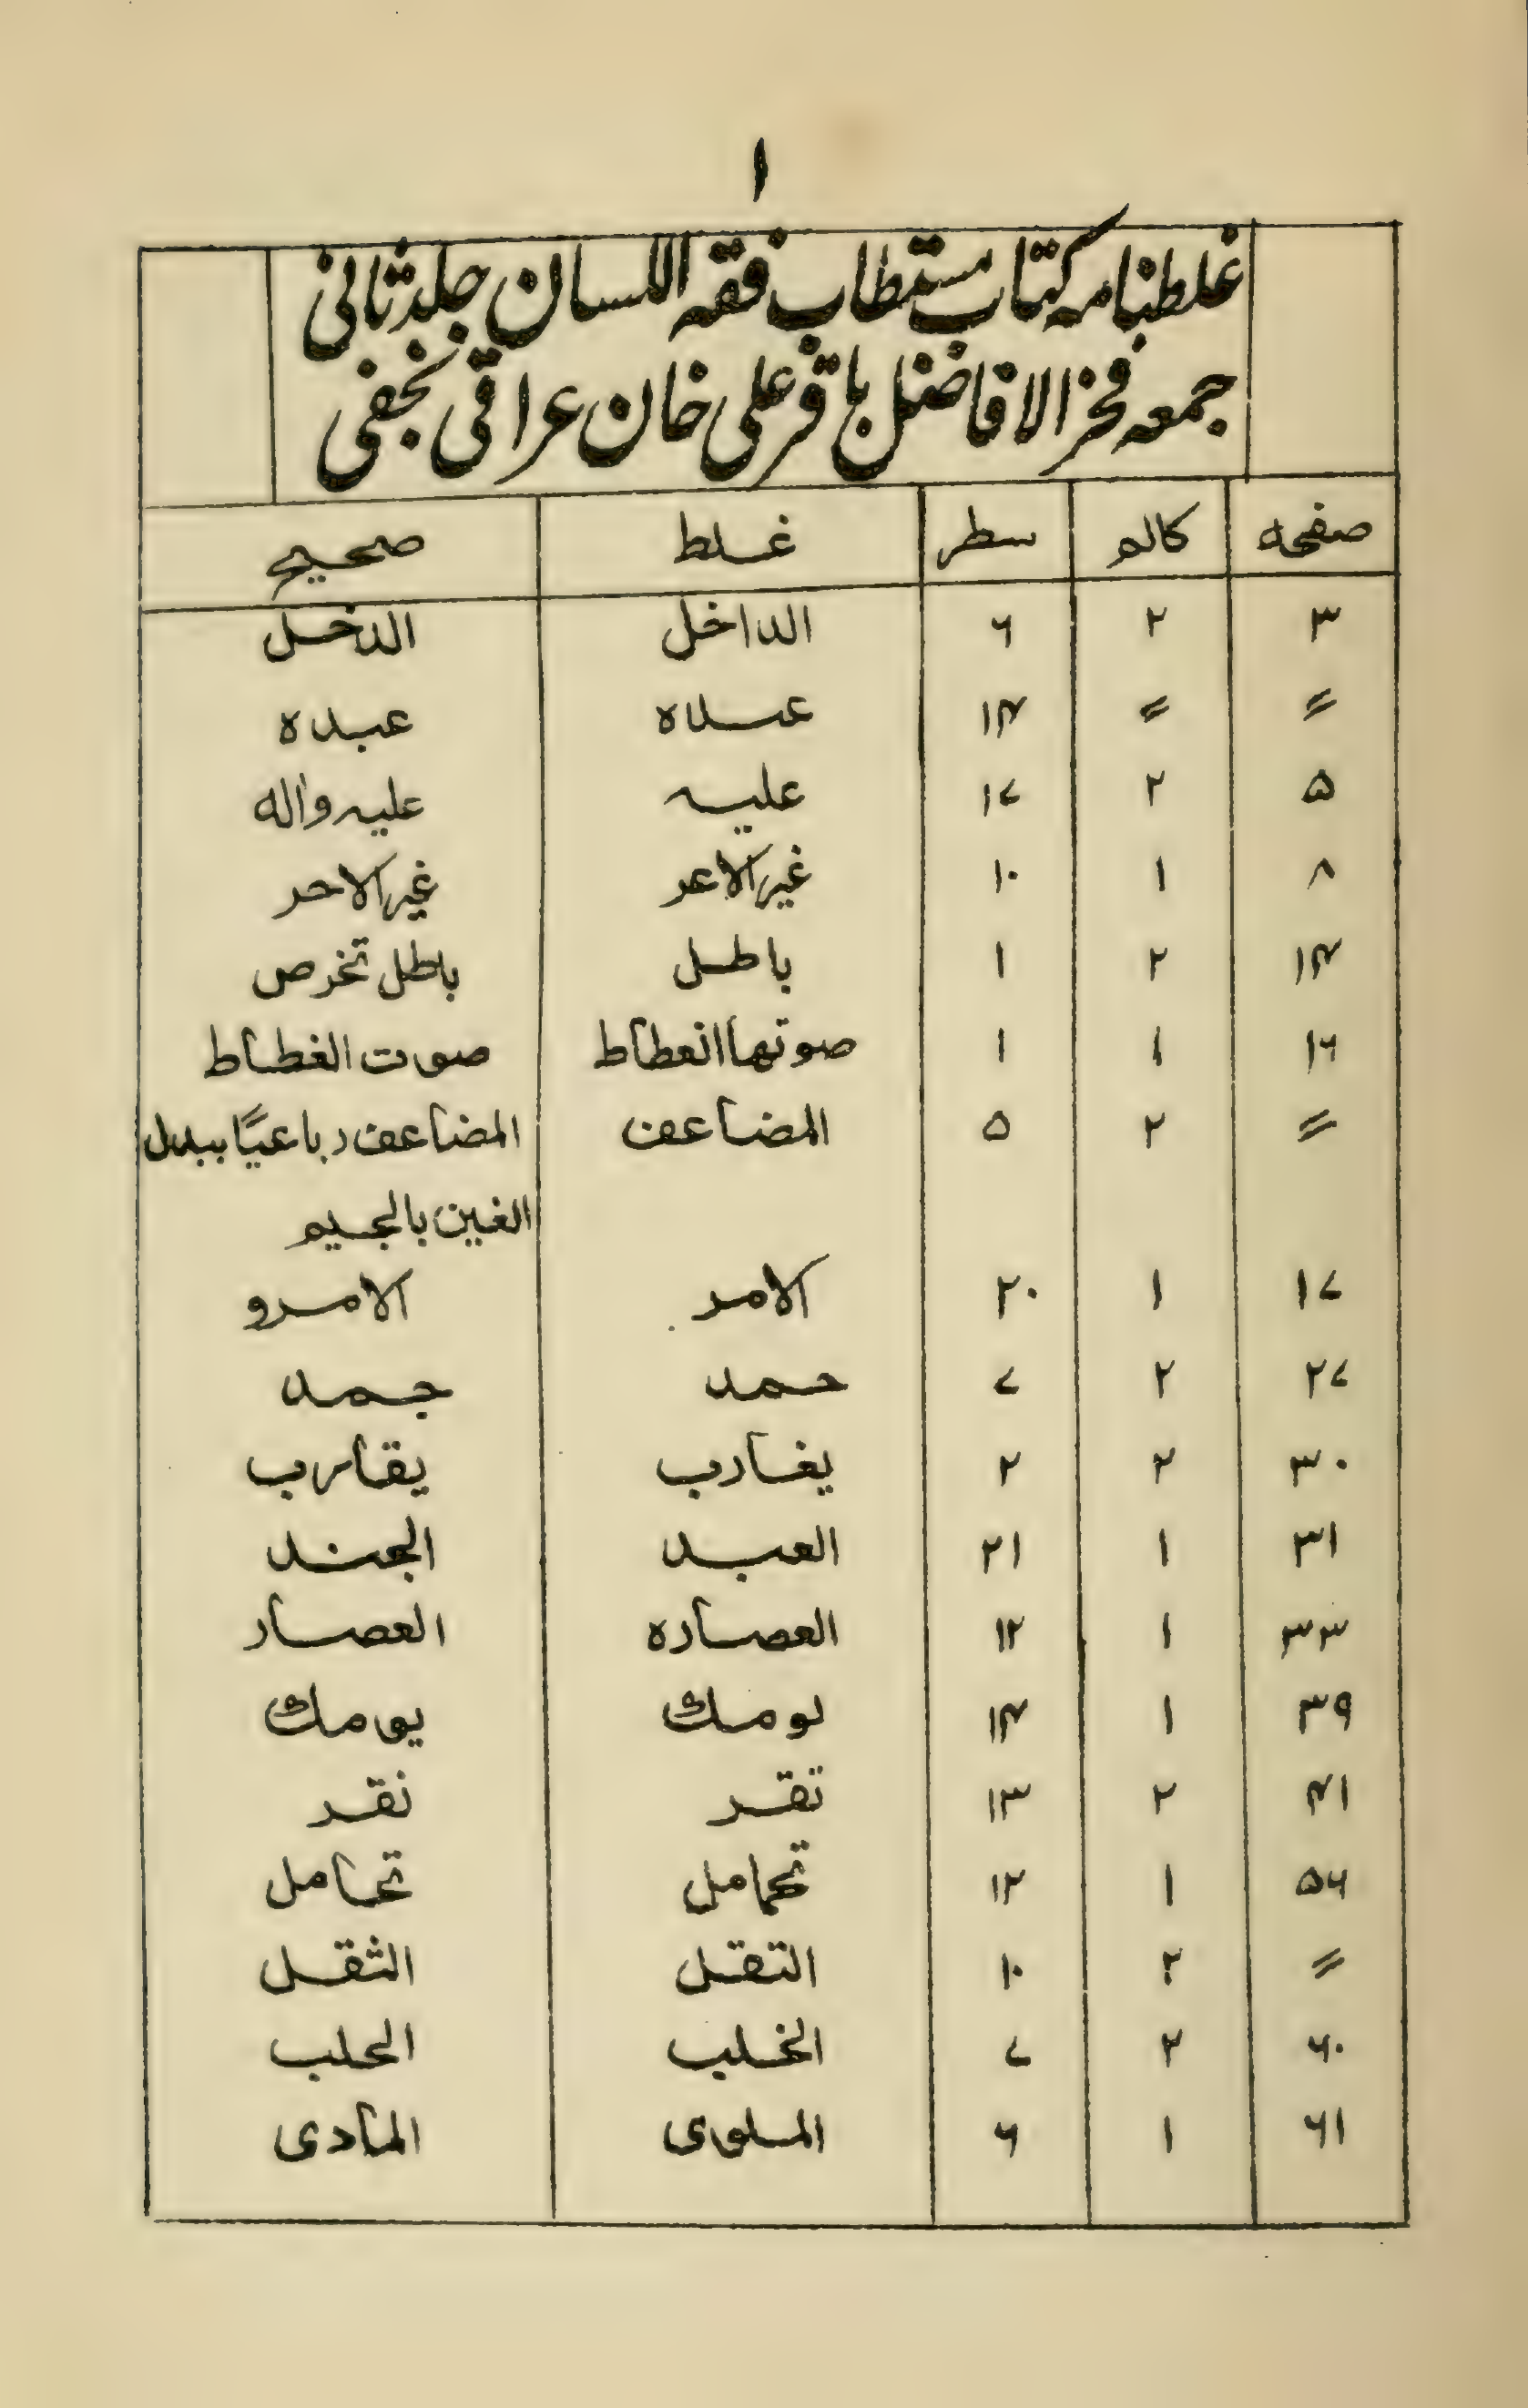 ۱
غلطنامہ کتاب مستطاب فقہ اللسان جلد ثانی
جمعہ فخر الافاضل باقر علی خان عراقی نجفی
صفحہ کالم سطر غلط صحیح
۳ ۲ ۶ الداخل الدخل
〃 〃 ۱۴ عسدہ عبدہ
۵ ۲ ۱۷ علیہ علیہ والہ
۸ ۱ ۱۰ غیر الاعر غیر الاحر
۱۴ ۲ ۱ باطل باطل تخرص
۱۶ ۱ ۱ صوتها انعطاط صوت الغطاط
〃 ۲ ۵ المضاعف المضاعف رباعیًا ببدل
الغین بالجیم
۱۷ ۱ ۲۰ الامر الامرو
۲۷ ۲ ۷ حمد جمد
۳۰ ۲ ۲ یغارب یقارب
۳۱ ۱ ۲۱ العبد الجند
۳۳ ۱ ۱۲ العصارہ العصار
۳۹ ۱ ۱۴ لومك یومك
۴۱ ۲ ۱۳ تقر نقر
۵۶ ۱ ۱۲ تحمامل تحامل
〃 ۲ ۱۰ التقل الثقل
۶۰ ۲ ۷ الخلب الحلب
۶۱ ۱ ۶ الملوی المادی